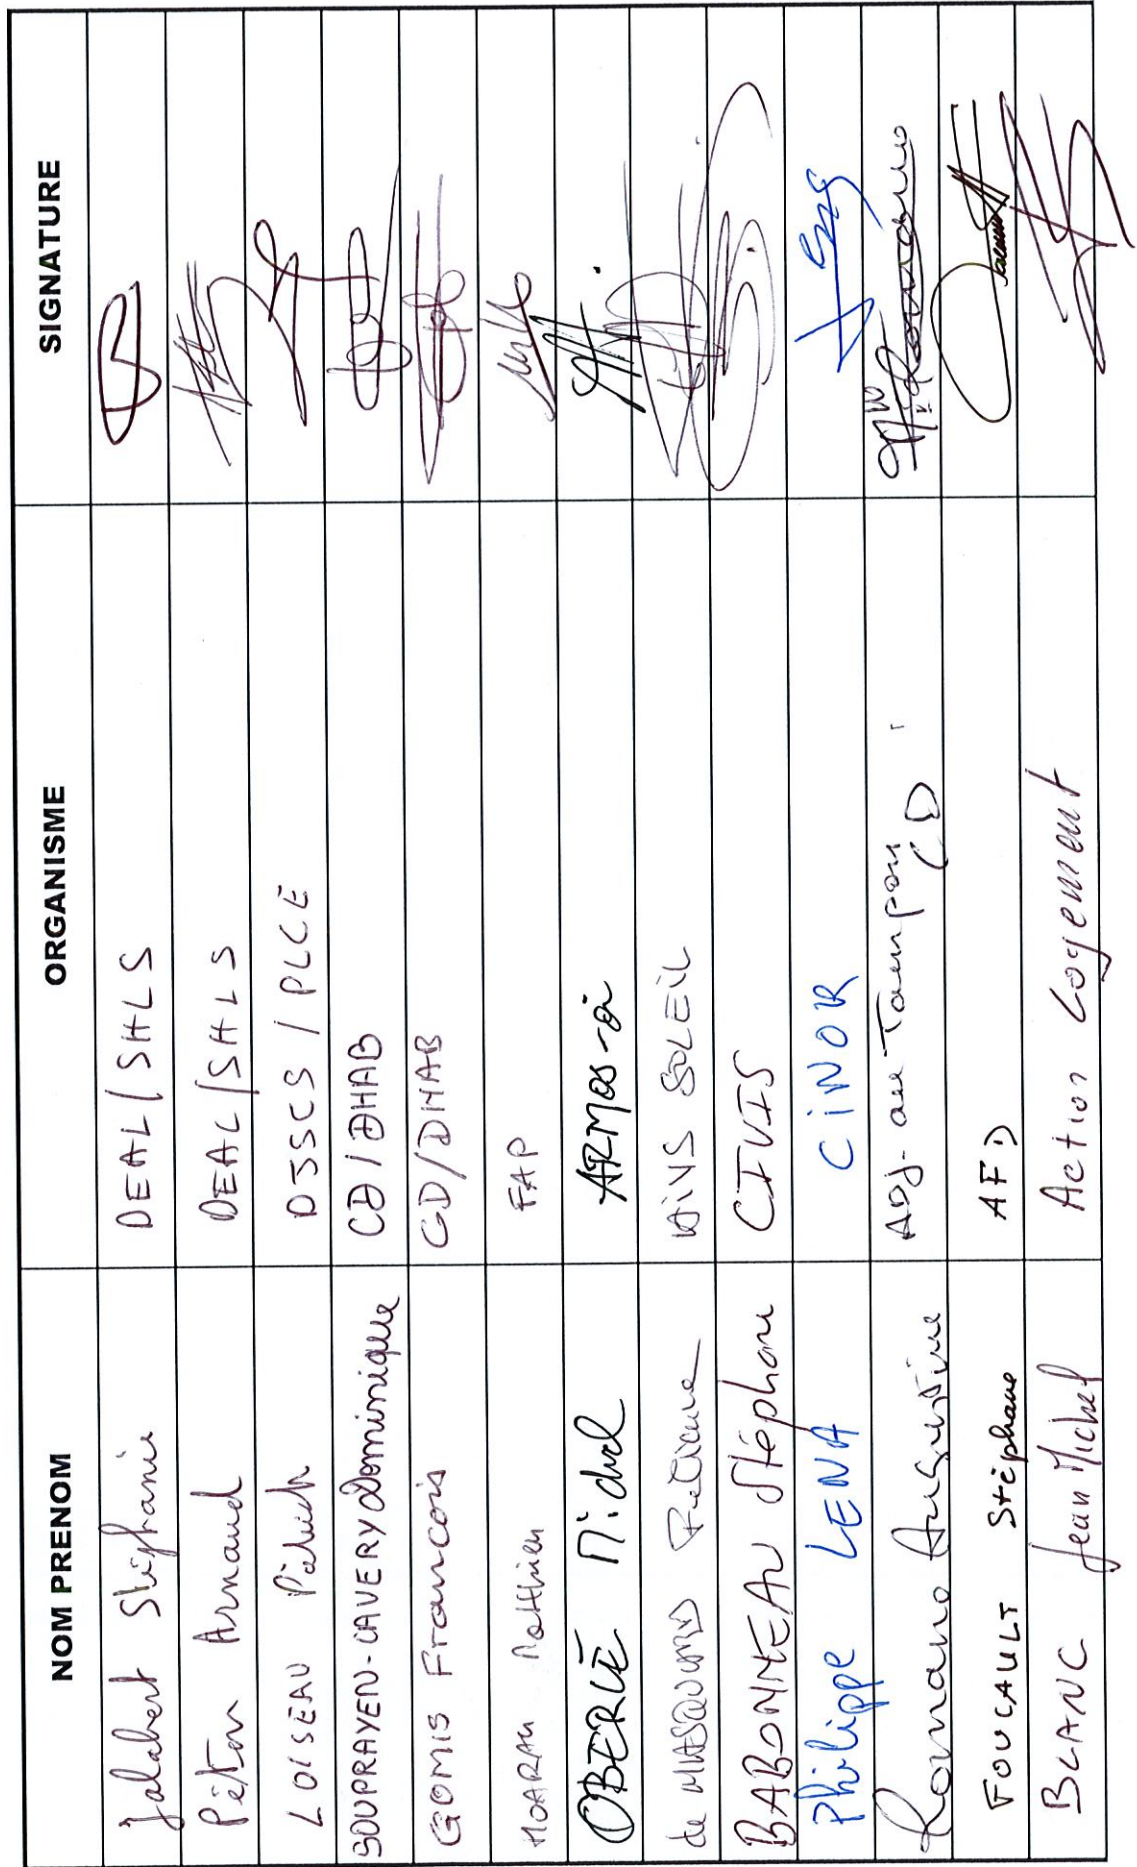 NOM PRENOM ORGANISME SIGNATURE
Jalabert Stéphanie DEAL/SHLS
Péton Arnaud DEAL/SHLS
LOISEAU Patrick DJSCS / PLCE
SOUPRAYEN-CAVERY Dominique CD/DHAB
GOMIS Francois CD/DHAB
HOARAU Matthieu FAP
OBERLÉ Michel ARMOS-oi
de SOLEIL
BABONNEAU Stéphane CIVIS
Philippe LENA CiNOR
Romano Augustine ADJ. au Tampon
CD
FOUCAULT Stéphane AFD
BLANC Jean Michel Action Logement